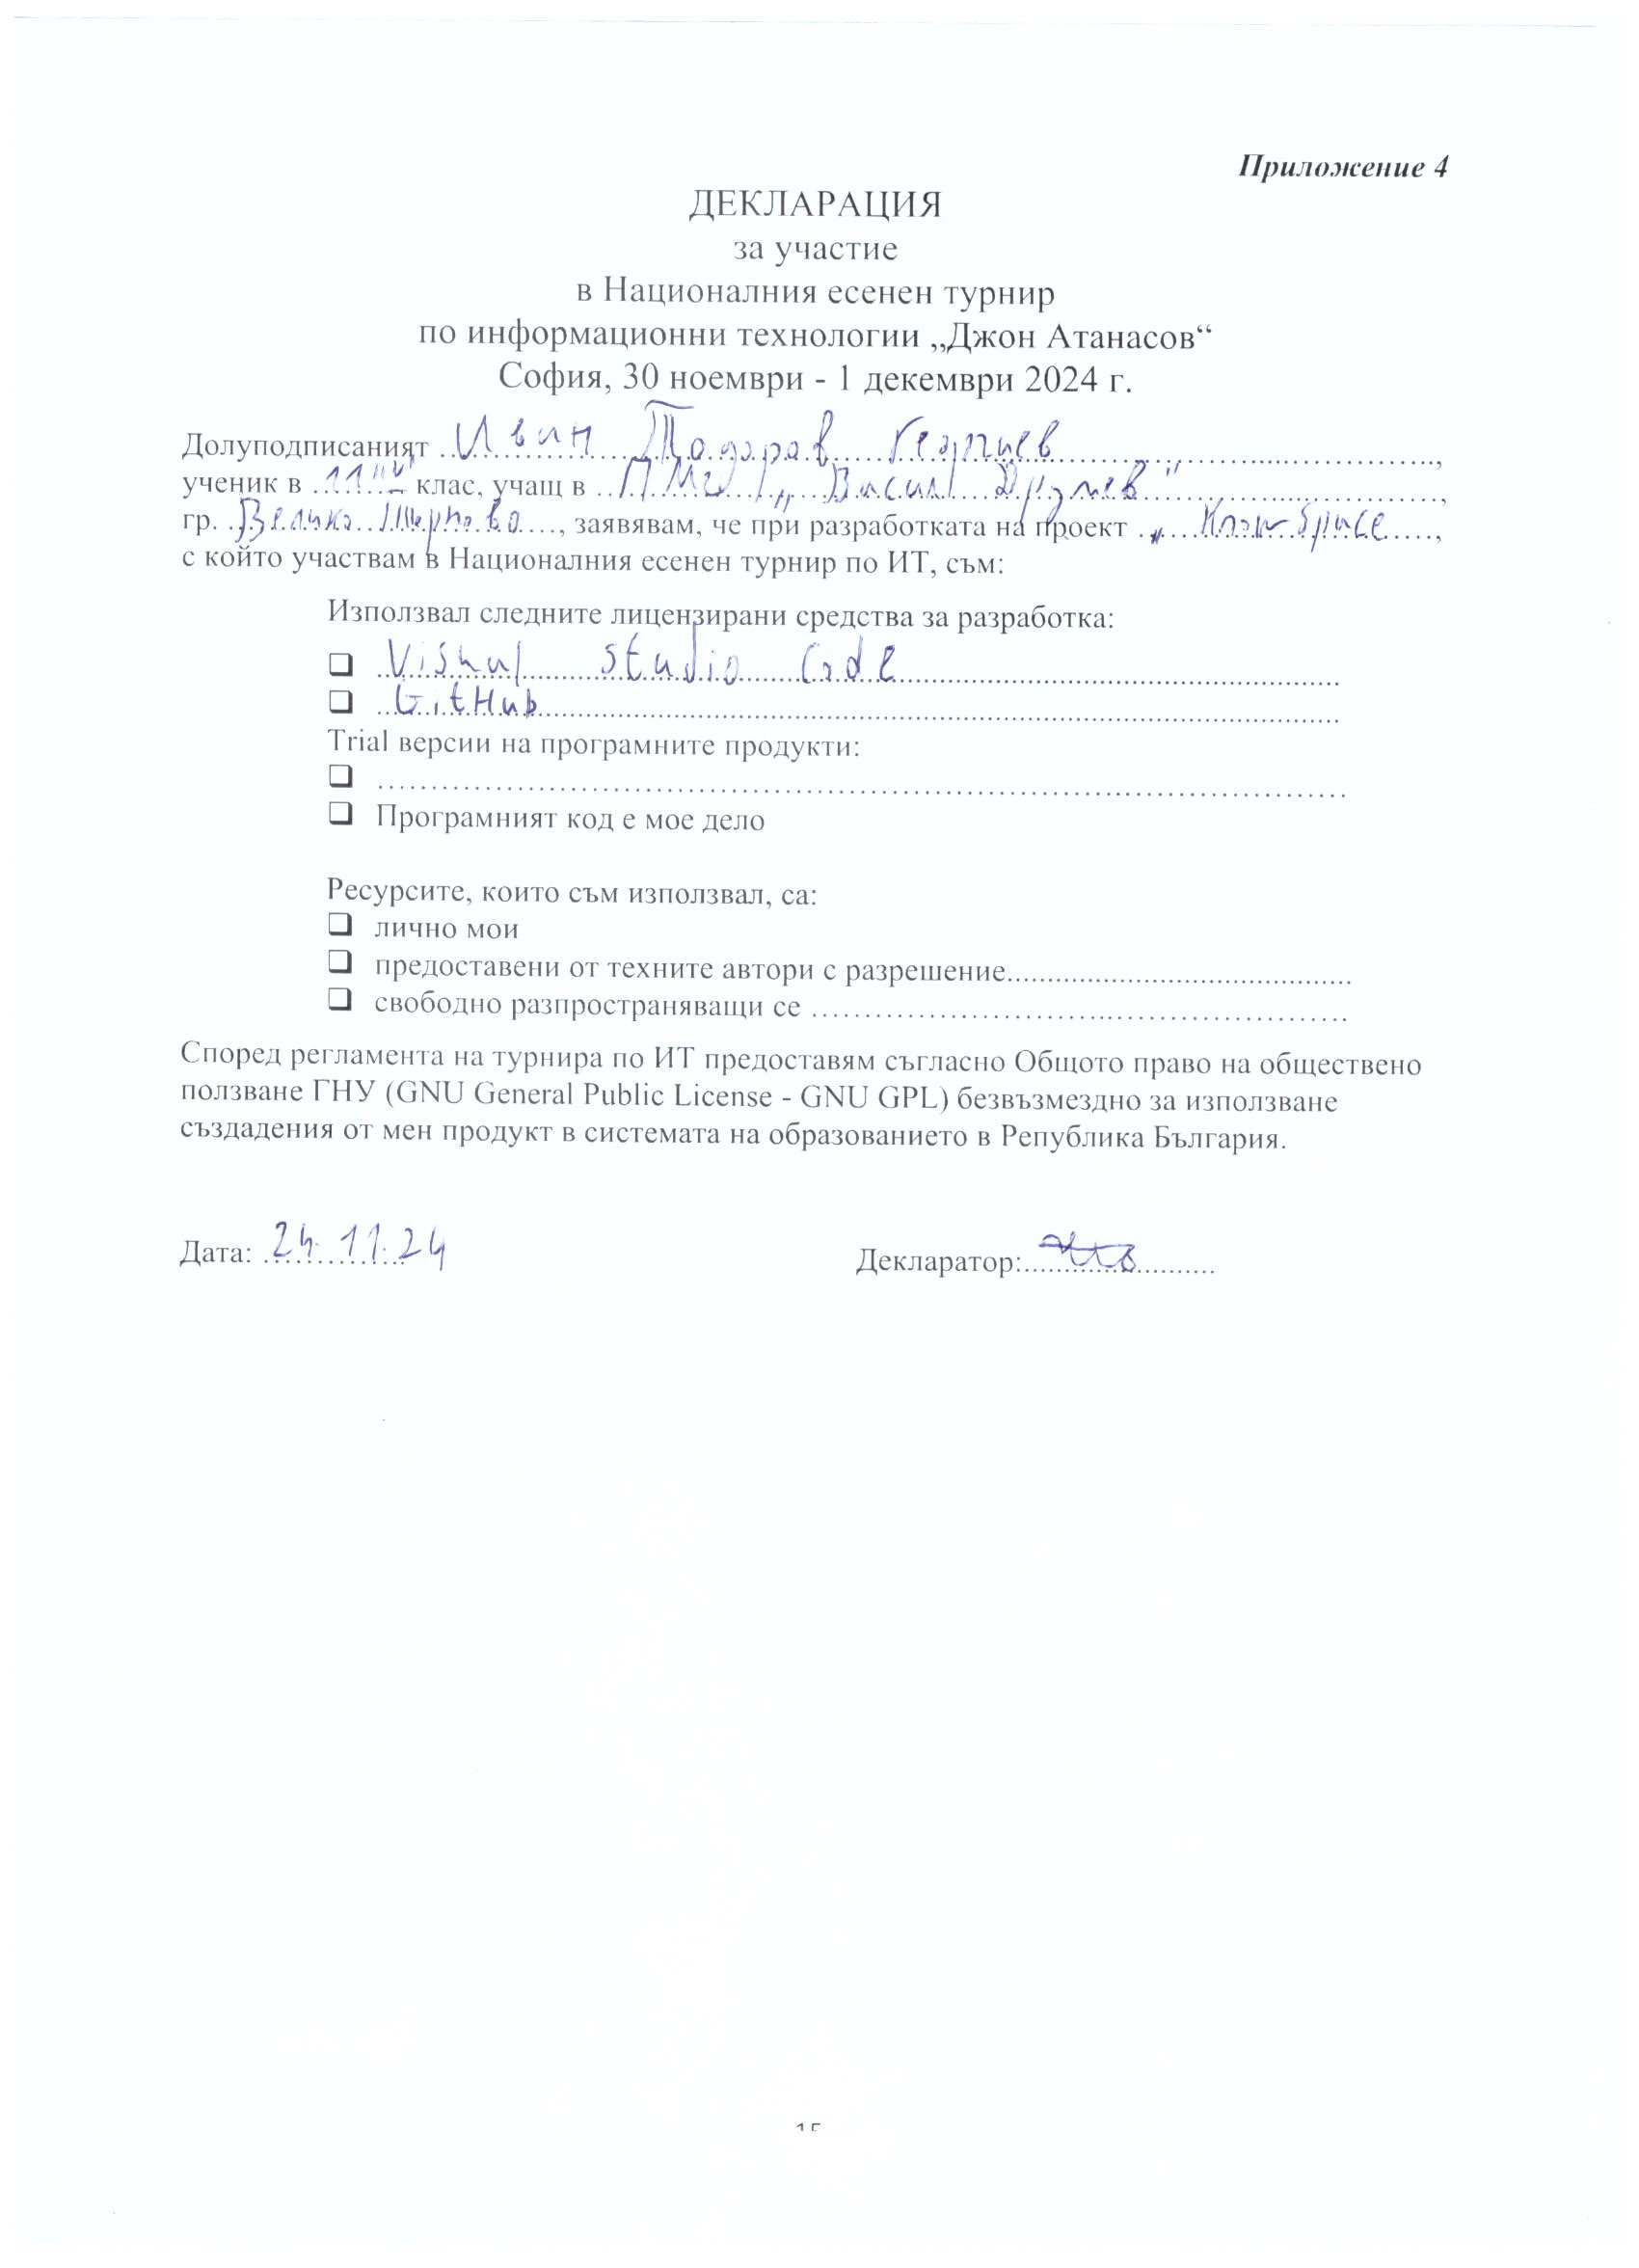 Приложение 4
ДЕКЛАРАЦИЯ
за участие
в Националния есенен турнир
по информационни технологии „Джон Атанасов“
София, 30 ноември - 1 декември 2024 г.
Долуподписаният Иван Тодоров Георгиев,
ученик в 11 клас, учащ в ПМГ „Васил Друмев",
гр. Велико Търново, заявявам, че при разработката на проект „KnowSpace,
с който участвам в Националния есенен турнир по ИТ, съм:
Използвал следните лицензирани средства за разработка:
❑ Visual studio Code
❑ GitHub
Trial версии на програмните продукти:
❑ ........................................
❑ Програмният код е мое дело
Ресурсите, които съм използвал, са:
❑ лично мои
❑ предоставени от техните автори с разрешение........................................
❑ свободно разпространяващи се ........................................
Според регламента на турнира по ИТ предоставям съгласно Общото право на обществено
ползване ГНУ (GNU General Public License - GNU GPL) безвъзмездно за използване
създадения от мен продукт в системата на образованието в Република България.
Дата: 24.11.24 Декларатор: